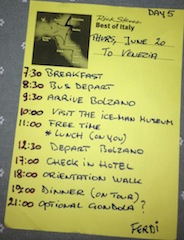 DAY 5
Rick Steves
Best of Italy
THURS, JUNE 20
TO VENEZIA
7:30 BREAKFAST
8:30 BUS DEPART
9:30 ARRIVE BOLZANO
10:00 VISIT THE ICEMAN MUSEUM
11:00 FREE TIME
* LUNCH (ON YOU)
12:30 DEPART BOLZANO
17:00 CHECK IN HOTEL
18:00 ORIENTATION WALK
19:00 DINNER (ON TOUR)
21:00 OPTIONAL GONDOLA ?
FERDI